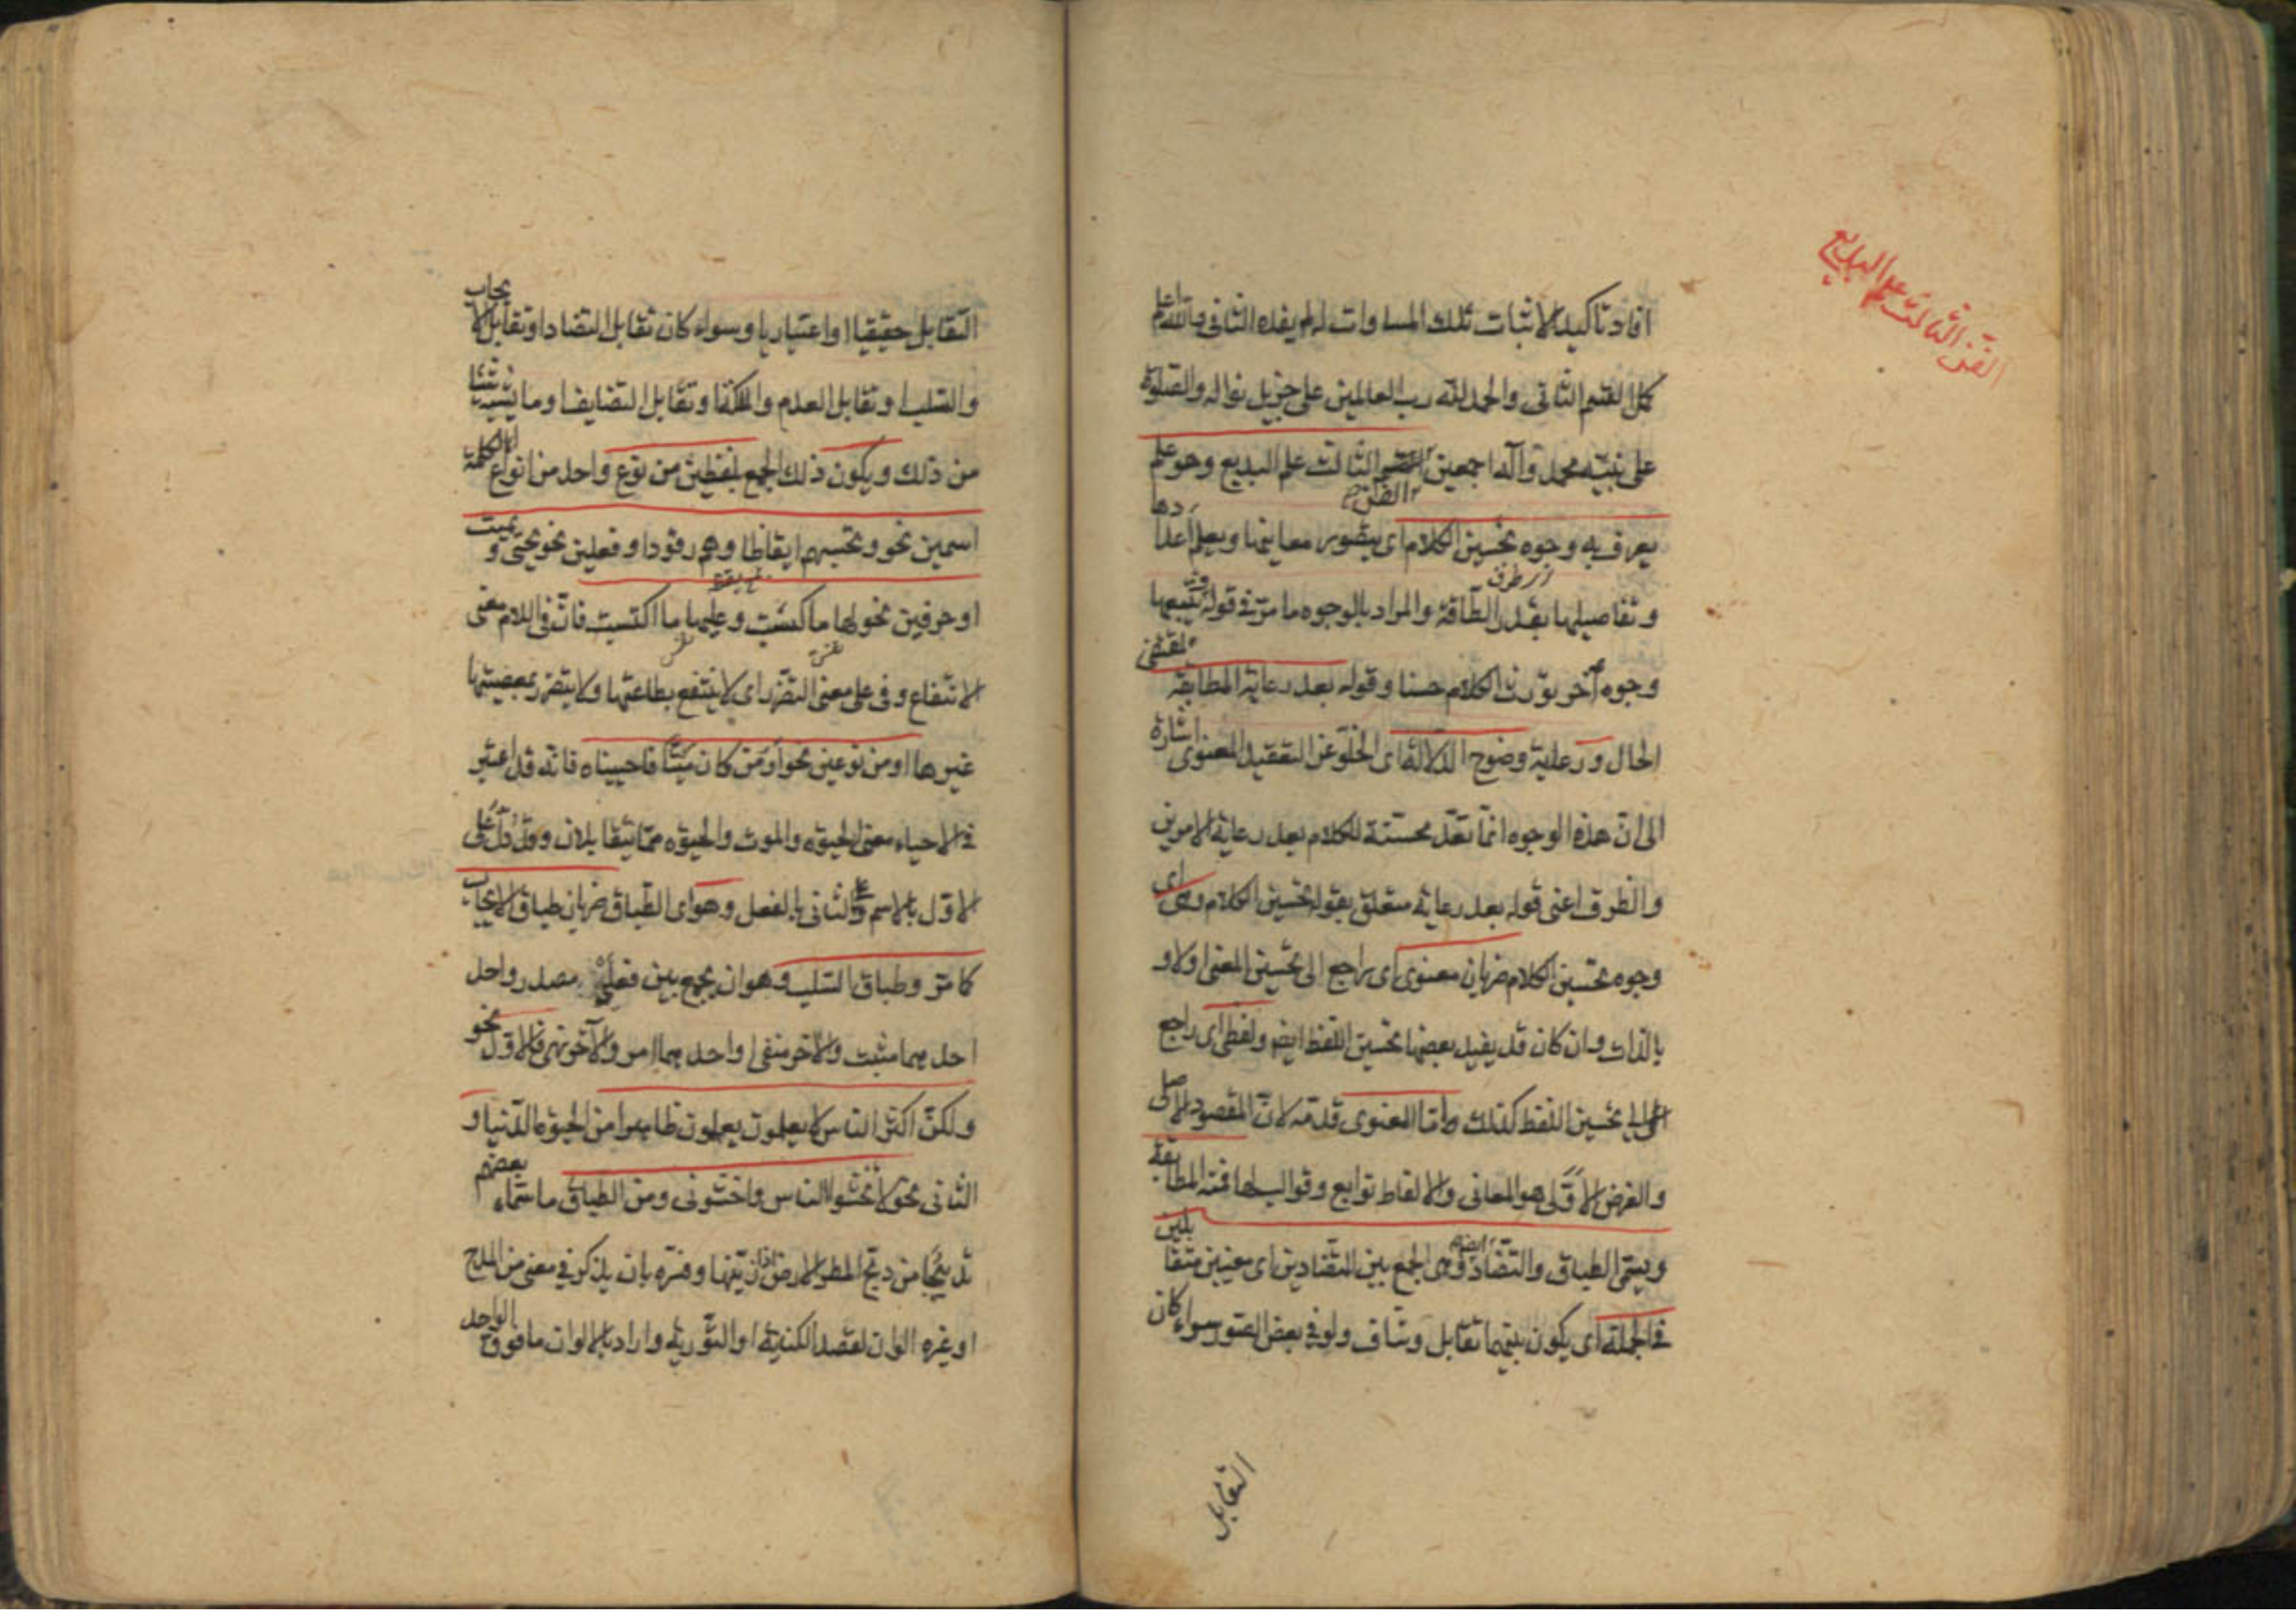 الفن الثالث علم البديع
افاد تاكيدا لاثبات تلك المساوات له لم يفده الثانى والله اعلم
كمل القسم الثانى والحمد لله رب العالمين على جزيل نواله والصلوة
على نبيه محمد وآله اجمعين القسم الثالث علم البديع وهو علم
الفن
يعرف به وجوه تحسين الكلام اى يتصور معانيها ويعلم اعدادها
وتفاصيلها بقدر الطاقة والمراد بالوجوه ما مر فى قوله وتتبعها
وجوه أخر تورث الكلام حسنا وقوله بعد رعاية المطابقة لمقتضى
الحال ورعاية وضوح الدلالة اى الخلو عن التعقيد المعنوى اشارة
الى ان هذه الوجوه انما تعد محسنة للكلام بعد رعاية الامرين
والظرف اعنى قوله بعد رعاية متعلق بقوله تحسين الكلام وهى اى
وجوه تحسين الكلام ضربان معنوى اى راجع الى تحسين المعنى اولا و
بالذات وان كان قد يفيد بعضها تحسين اللفظ ايضا ولفظى اى راجع
الى تحسين اللفظ كذلك اما المعنوى قدمه لان المقصود الاصلى
والغرض الاولى هو المعانى والالفاظ توابع وقوالب لها فمنه المطابقة
ويسمى الطباق والتضاد ايضا وهى الجمع بين المتضادين اى معنيين متقابلين
فى الجملة اى يكون بينهما تقابل وتناف ولو فى بعض الصور سواء كان
التقابل
التقابل حقيقيا او اعتباريا وسواء كان تقابل التضاد او تقابل الايجاب
والسلب او تقابل العدم والملكة او تقابل التضايف او ما يشبه شيئا
من ذلك ويكون ذلك الجمع بلفظين من نوع واحد من انواع الكلمة
اسمين نحو وتحسبهم ايقاظا وهم رقود او فعلين نحو يحيى ويميت
او حرفين نحو لها ما كسبت وعليها ما اكتسبت فان فى اللام معنى
الانتفاع وفى على معنى التضرر اى لا ينتفع بطاعتها ولا يتضرر بمعصيتها
غيرها او من نوعين نحو أومن كان ميتا فاحييناه فانه قد اعتبر
فى الاحياء معنى الحيوة والموت والحيوة مما يتقابلان وقد دل على
الاول بالاسم وعلى الثانى بالفعل وهو اى الطباق ضربان طباق الايجاب
كما مر وطباق السلب وهو ان يجمع بين فعلى مصدر واحد
احدهما مثبت والاخر منفى او احدهما امر والآخر نهى فالاول نحو
ولكن اكثر الناس لا يعلمون يعلمون ظاهرا من الحيوة الدنيا و
الثانى نحو لا تخشوا الناس واخشونى ومن الطباق ما سماه بعضهم
تدبيجا من دبج المطر الارض اذا زينها وفسره بان يذكر فى معنى من المدح
او غيره الوان لقصد الكناية او التورية واراد بالالوان ما فوق الواحد